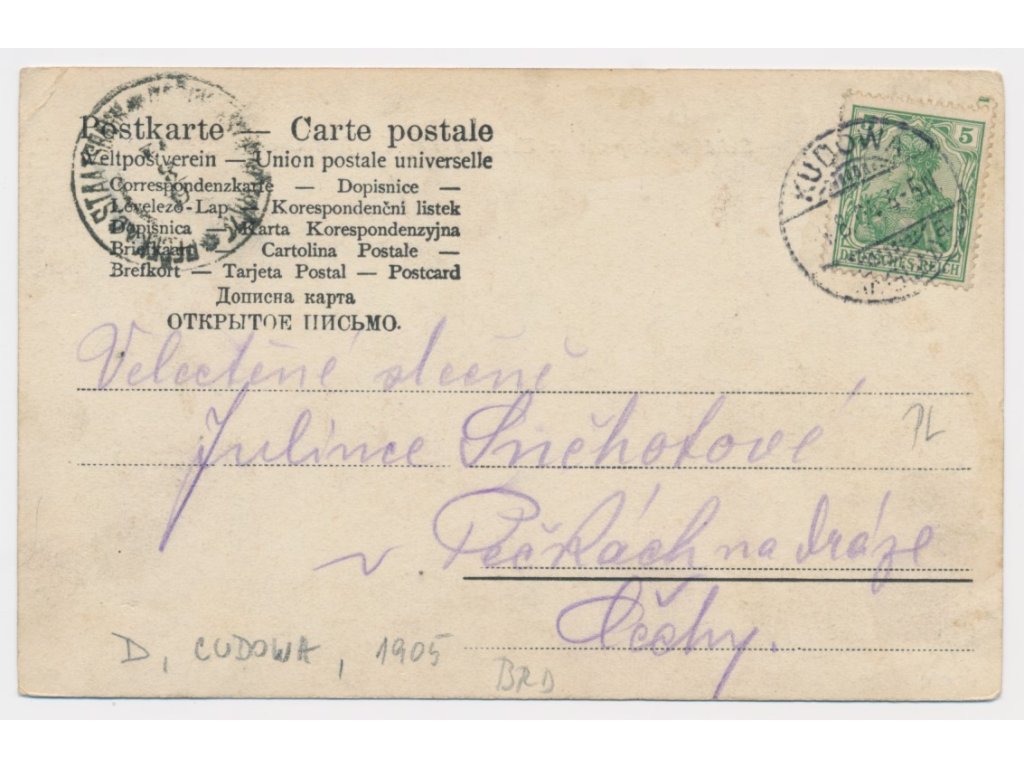 Postkarte — Carte postale
Weltpostverein — Union postale universelle
Correspondenzkarte — Dopisnice —
Levelezö-Lap — Korespondenční listek
Dopisnica — Karta Korespondenzyjna
Briefkaart — Cartolina Postale —
Brefkort — Tarjeta Postal — Postcard
Дописна карта
ОТКРЫТОЕ ПИСЬМО.
KUDOWA
5
DEUTSCHES REICH
Velectěné slečně
Julince Suchotové
PL
v Pečkách na dráze
Čechy.
D, CUDOWA, 1905
BRD